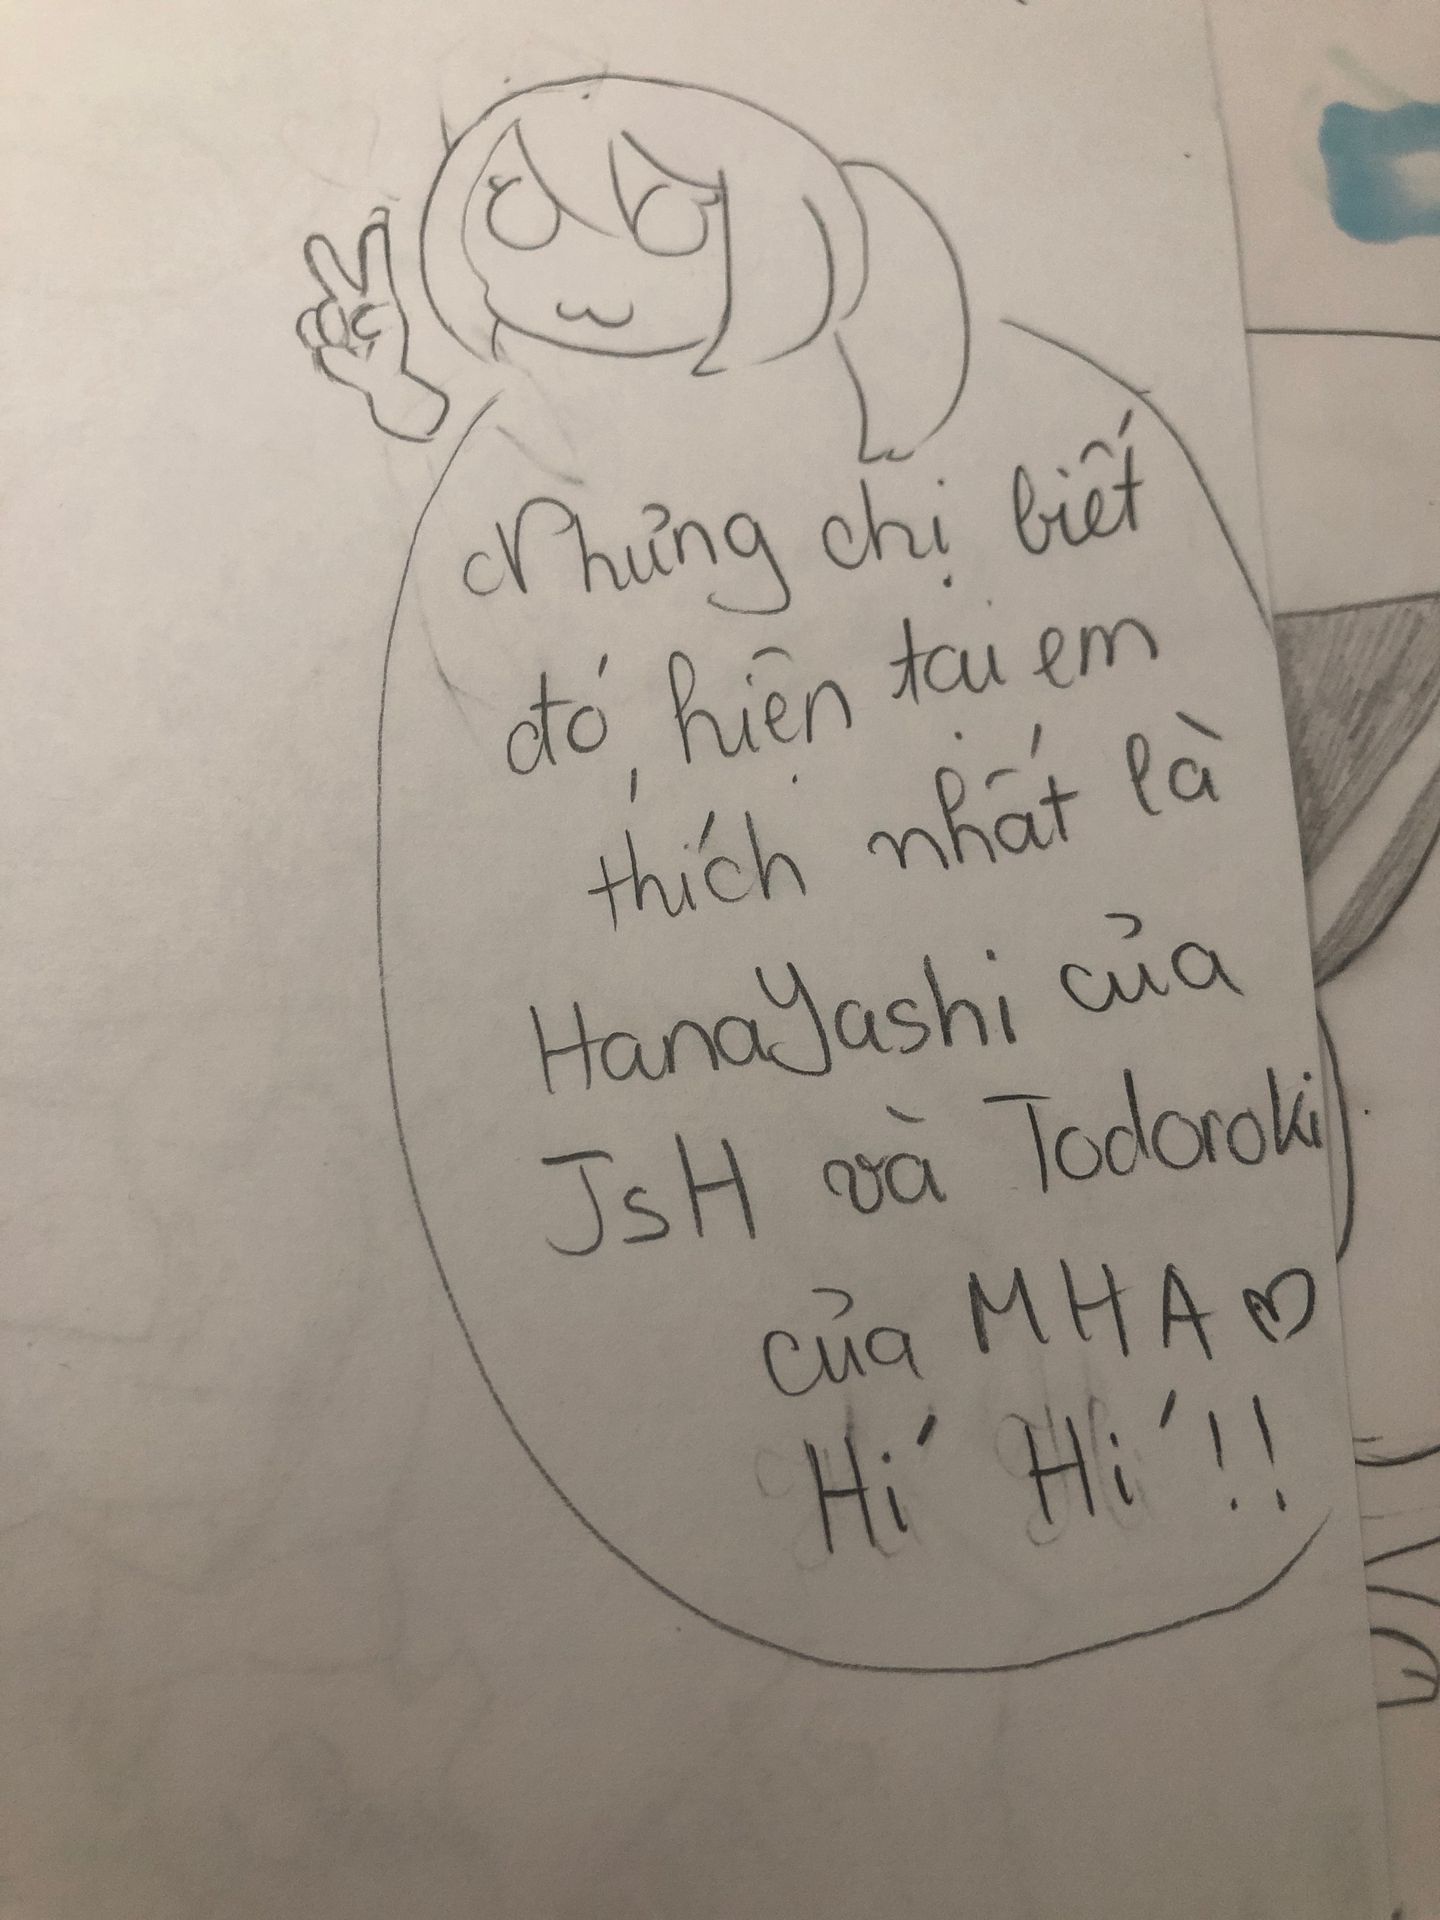 Nhưng chị biết
đó, hiện tại em
thích nhất là
HanaYashi của
JsH và Todoroki
của MHA ♡
Hí Hí!!